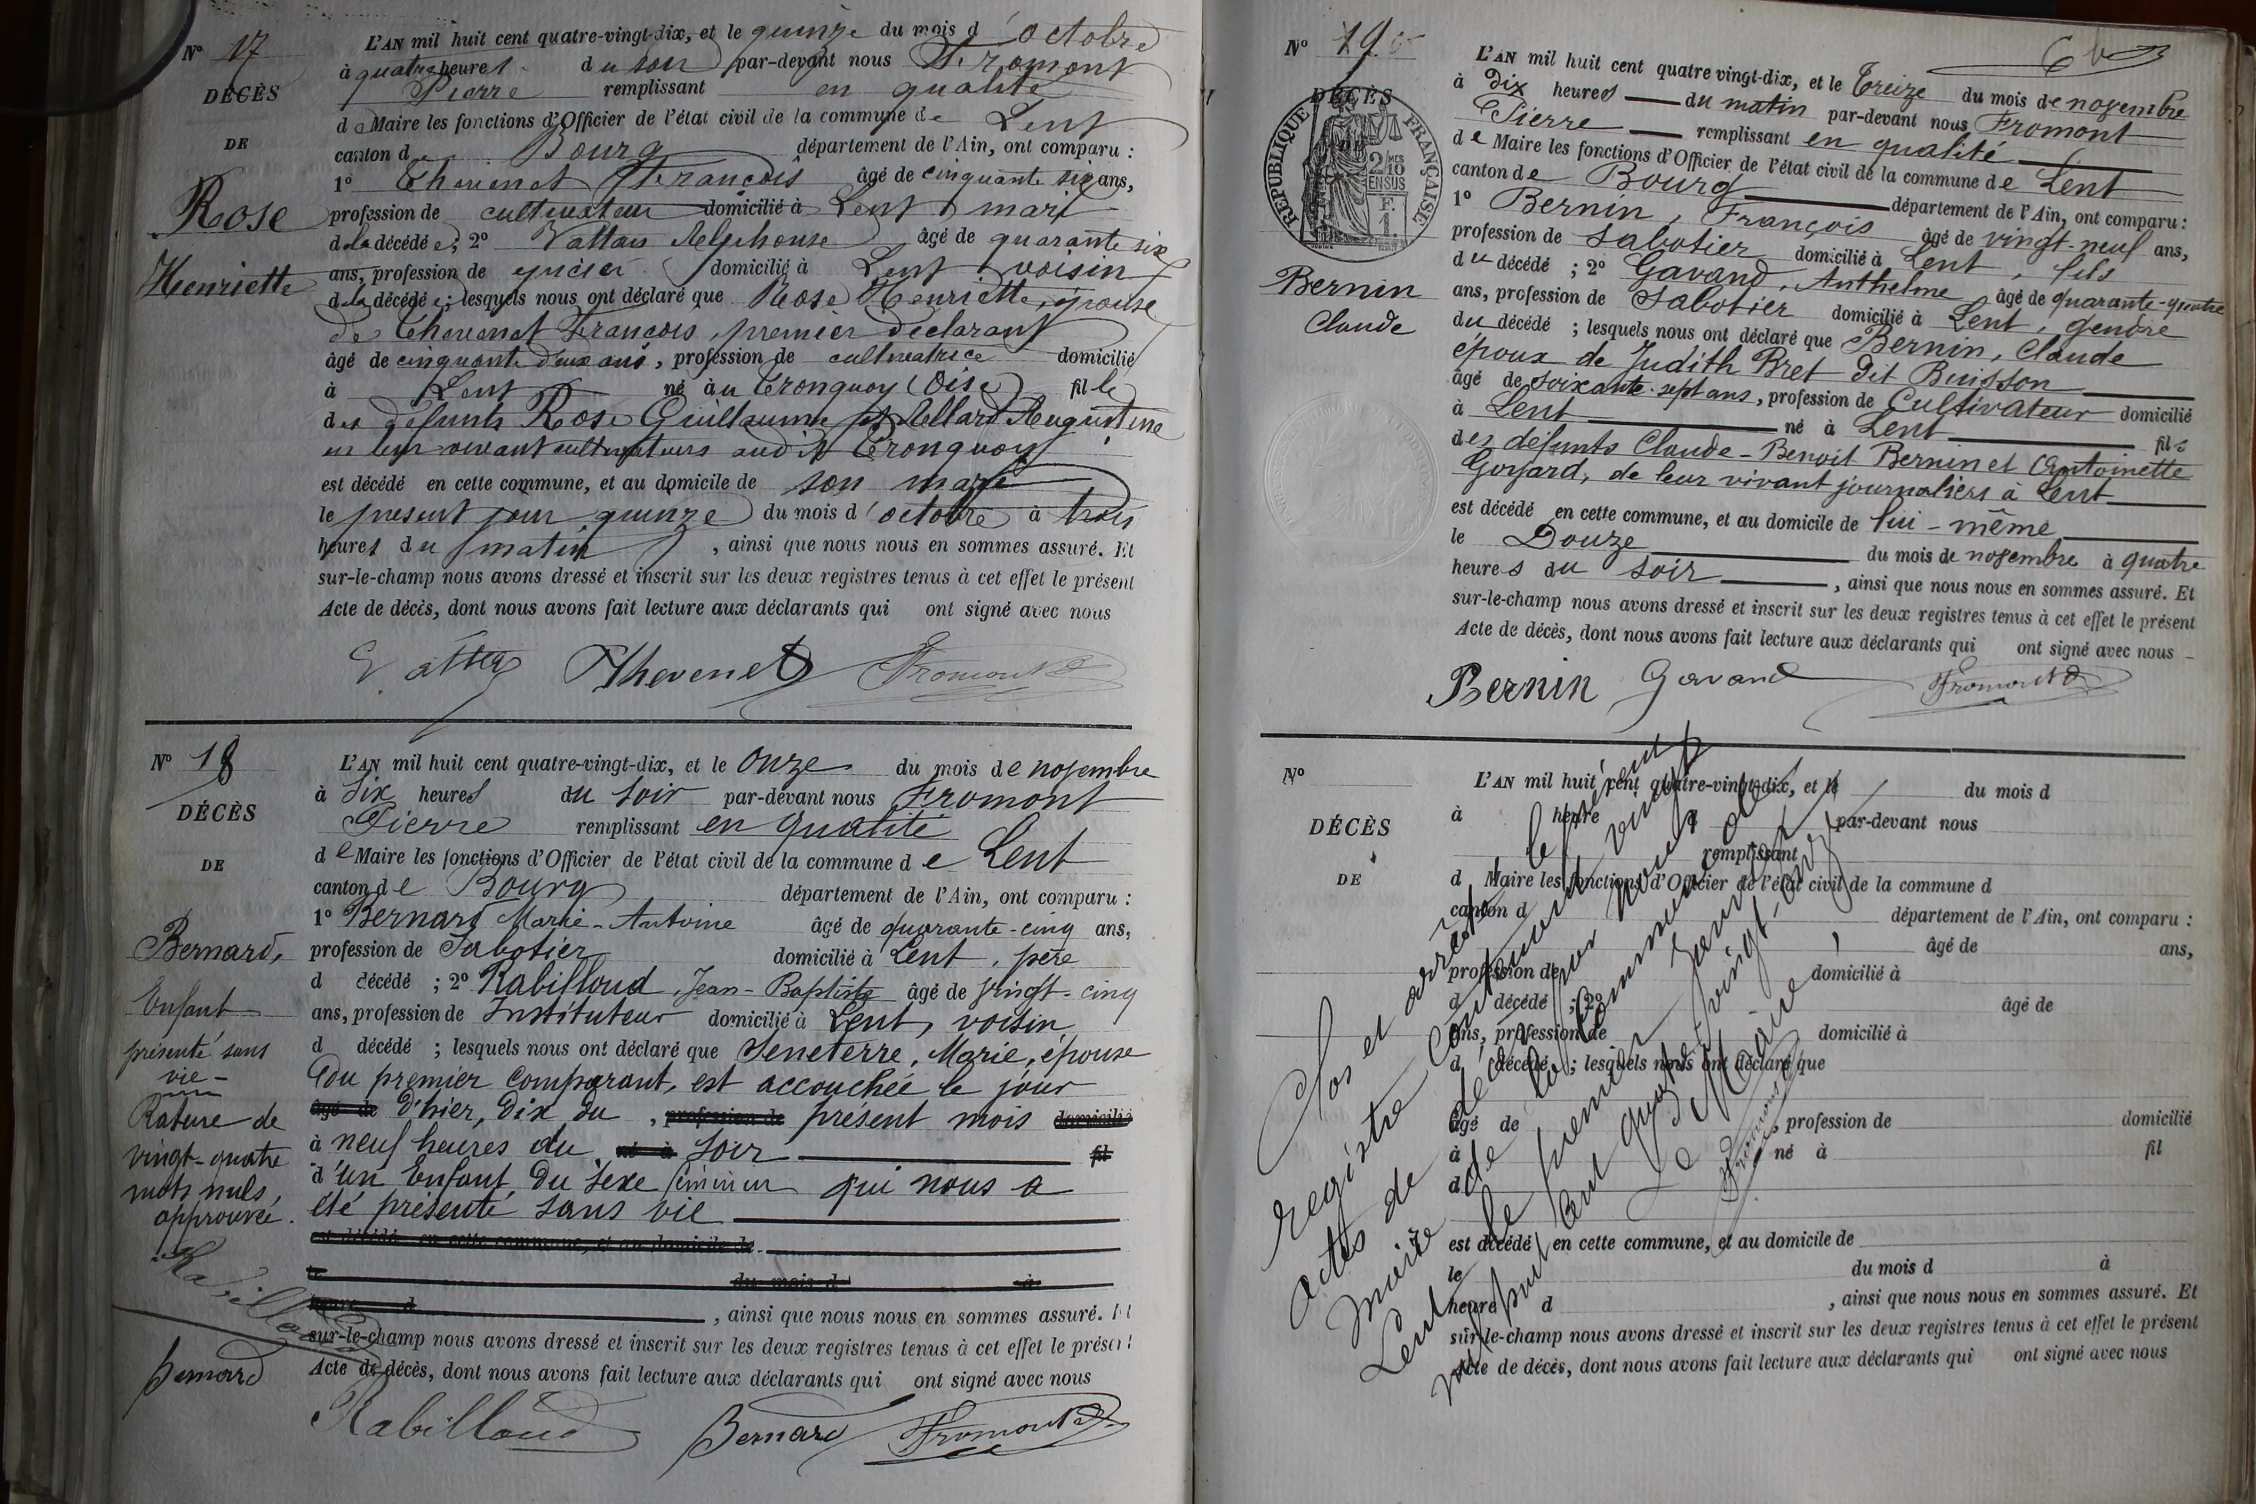 N° 17
DÉCÈS
DE
Rose
Henriette
L'AN mil huit cent quatre-vingt-dix, et le quinze du mois d'octobre
à quatre heures du soir par-devant nous Fromont
Pierre remplissant en qualité
de Maire les fonctions d'Officier de l'état civil de la commune de Lent
canton d Bourg département de l'Ain, ont comparu :
1° Thevenet François âgé de cinquante six ans,
profession de cultivateur domicilié à Lent mari
de la décédée ; 2° Vattan Alphonse âgé de quarante six
ans, profession de épicier domicilié à Lent voisin
de la décédée ; lesquels nous ont déclaré que Rose Henriette, épouse
de Thevenet François, premier déclarant
âgé de cinquante deux ans, profession de cultivatrice domicilié
à Lent né au Tronquoy (Oise) fille
des défunts Rose Guillaume et Allard Augustine
en leur vivant cultivateurs audit Tronquoy
est décédé en cette commune, et au domicile de son mari
le présent jour quinze du mois d'octobre à trois
heures du matin, ainsi que nous nous en sommes assuré. Et
sur-le-champ nous avons dressé et inscrit sur les deux registres tenus à cet effet le présent
Acte de décès, dont nous avons fait lecture aux déclarants qui ont signé avec nous
Thevenet Fromont
N° 18
DÉCÈS
DE
Bernard,
Enfant
présenté sans
vie -
Rature de
vingt-quatre
mots nuls,
approuvée.
Rabilloud
Bernard
L'AN mil huit cent quatre-vingt-dix, et le onze du mois de novembre
à six heures du soir par-devant nous Fromont
Pierre remplissant en qualité
de Maire les fonctions d'Officier de l'état civil de la commune de Lent
canton de Bourg département de l'Ain, ont comparu :
1° Bernard Marie-Antoine âgé de quarante-cinq ans,
profession de Sabotier domicilié à Lent, père
d décédé ; 2° Rabilloud, Jean-Baptiste âgé de vingt-cinq
ans, profession de Instituteur domicilié à Lent, voisin
d décédé ; lesquels nous ont déclaré que Seneterre, Marie, épouse
du premier comparant, est accouchée le jour
âgé de d'hier, dix du, profession de présent mois domicilié
à neuf heures du né à soir fil
d'un Enfant du sexe féminin qui nous a
été présenté sans vie
est décédé en cette commune, et au domicile de
le du mois d à
heure d , ainsi que nous nous en sommes assuré. Et
sur-le-champ nous avons dressé et inscrit sur les deux registres tenus à cet effet le présent
Acte de décès, dont nous avons fait lecture aux déclarants qui ont signé avec nous
Rabilloud Bernard Fromont
N° 19
DÉCÈS
RÉPUBLIQUE FRANÇAISE
2 MES
10
EN SUS
F.
1.
Bernin
Claude
L'AN mil huit cent quatre vingt-dix, et le treize du mois de novembre
à dix heures du matin par-devant nous Fromont
Pierre remplissant en qualité
de Maire les fonctions d'Officier de l'état civil de la commune de Lent
canton de Bourg département de l'Ain, ont comparu :
1° Bernin, François âgé de vingt-neuf ans,
profession de Sabotier domicilié à Lent, fils
du décédé ; 2° Gavand, Anthelme âgé de quarante-quatre
ans, profession de Sabotier domicilié à Lent, gendre
du décédé ; lesquels nous ont déclaré que Bernin, Claude
époux de Judith Bret dit Buisson
âgé de soixante-sept ans, profession de Cultivateur domicilié
à Lent né à Lent fils
des défunts Claude-Benoit Bernin et Antoinette
Goyard, de leur vivant journaliers à Lent
est décédé en cette commune, et au domicile de lui-même
le Douze du mois de novembre à quatre
heures du soir, ainsi que nous nous en sommes assuré. Et
sur-le-champ nous avons dressé et inscrit sur les deux registres tenus à cet effet le présent
Acte de décès, dont nous avons fait lecture aux déclarants qui ont signé avec nous
Bernin Gavand Fromont
N°
DÉCÈS
DE
L'AN mil huit cent quatre-vingt-dix, et le du mois d
à heure d par-devant nous
remplissant
d Maire les fonctions d'Officier de l'état civil de la commune d
canton d département de l'Ain, ont comparu :
âgé de ans,
profession de domicilié à
d décédé ; 2° âgé de
ans, profession de domicilié à
d décédé ; lesquels nous ont déclaré que
âgé de , profession de domicilié
à né à fil
d
est décédé en cette commune, et au domicile de
le du mois d à
heure d , ainsi que nous nous en sommes assuré. Et
sur-le-champ nous avons dressé et inscrit sur les deux registres tenus à cet effet le présent
Acte de décès, dont nous avons fait lecture aux déclarants qui ont signé avec nous
Clos et arrêté le présent
registre contenant vingt
actes de décès par nous
maire de la commune de
Lent le premier janvier
mil huit cent quatre-vingt-onze
Le Maire,
Fromont